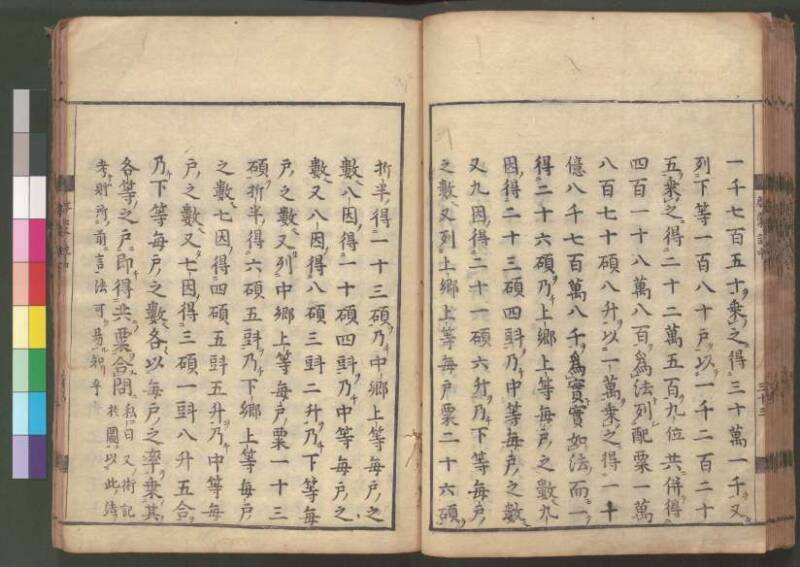 一千七百五十乘之得三十萬一千又
列下等一百八十戶以一千二百二十
五乘之得二十二萬五百九位共併得
四百一十八萬八百爲法列配粟一萬
八百七十碩八升以一萬乘之得一十
億八千七百萬八千爲實實如法而一
得二十六碩乃上鄉上等每戶之數九
因得二十三碩四㪷乃中等每戶之數
又九因得二十一碩六升乃下等每戶
之數又列上鄉上等每戶粟二十六碩
折半得一十三碩乃中鄉上等每戶之
數八因得一十碩四㪷乃中等每戶之
數又八因得八碩三㪷二升乃下等每
戶之數又列中鄉上等每戶粟一十三
碩折半得六碩五㪷乃下鄉上等每戶
之數七因得四碩五㪷五升乃中等每
戶之數又七因得三碩一㪷八升五合
乃下等每戶之數各以每戶之率乘其
各等之戶即得共粟合問 私曰又術記
於圖以此績
考則前言法可易知乎
三十三